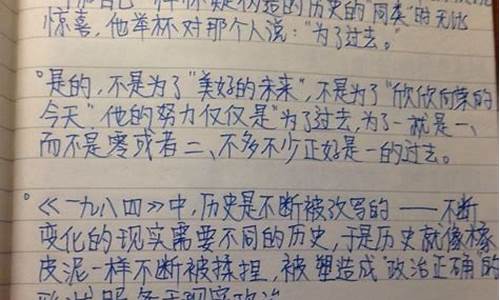 和自己一样怀疑构造的历史的"同类"时无比
惊喜，他举杯对那个人说："为了过去。"
°是的，不是为了"美好的未来"，不是为了"欣欣向荣的
今天"，他的努力仅仅是"为了过去，为了一就是一、
而不是零或者二、不多不少正好是一的过去。
°《一九八四》中，历史是不断被改写的——不断
变化的现实需要不同的历史，于是历史就像橡
皮泥一样不断被揉捏，被塑造成"政治正确"的